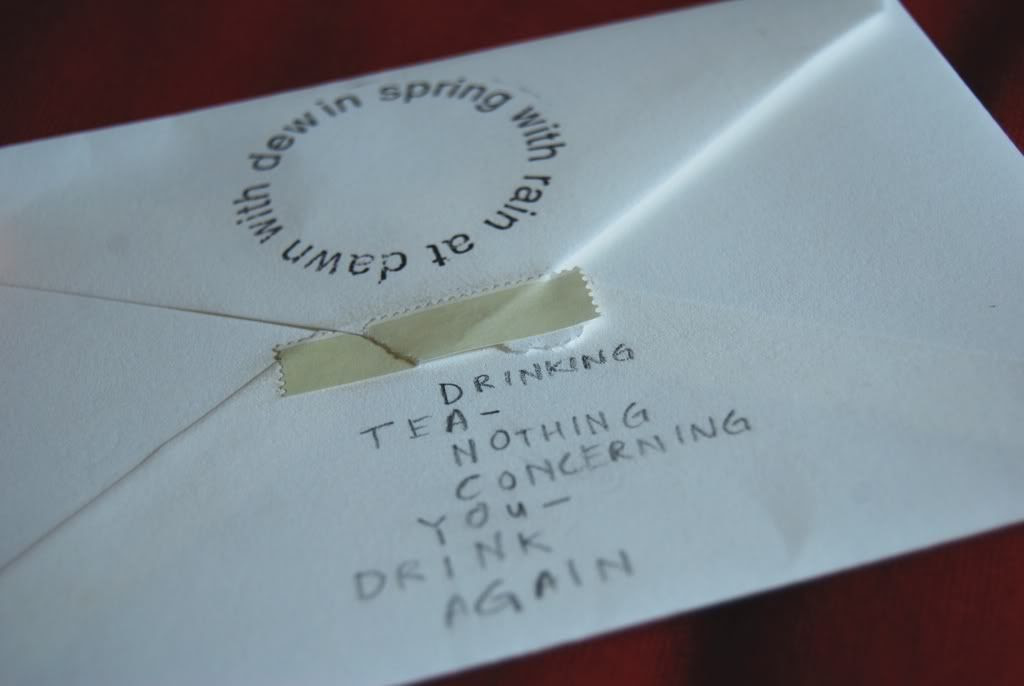 in spring with rain at dawn with dew
DRINKING
TEA-
NOTHING
CONCERNING
YOU-
DRINK
AGAIN